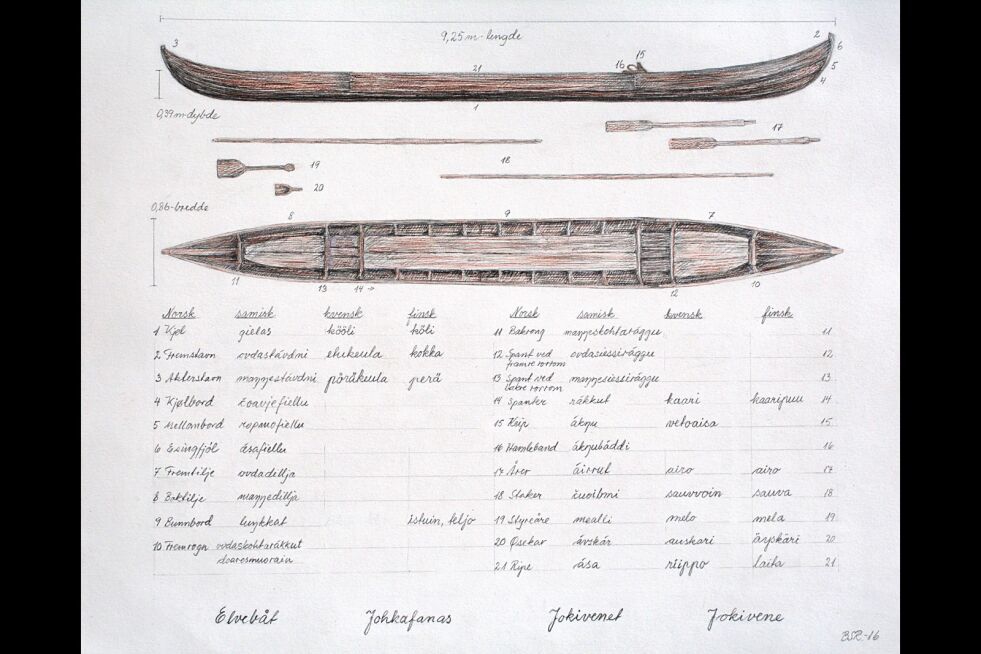 9,25 m-lengde
3
2
6
5
4
15
16
21
1
0,39 m-dybde
17
18
19
20
0,86-bredde
8
9
7
11
13
14 →
12
10
Norsk samisk kvensk finsk
1 Kjøl gielas kööli köli
2 Fremstavn ovdastávdni etukeula kokka
3 Akterstavn maŋŋestávdni peräkeula perä
4 Kjølbord
5 Mellombord
6 Esingfjøl ásafiellu
7 Fremtilje ovdadillja
8 Baktilje maŋŋedillja
9 Bunnbord istuin, teljo
10 ovdaskohtarákkut
doaresmuorain
Norsk samisk kvensk finsk
11 Bakrong maŋŋeskohtarággu 11
12 Spant ved ovdasiessirággu 12
fremre rorrom
13 Spant ved maŋŋesiessirággu 13
bakre rorrom
14 Spanter rákkut kaari kaaripuu 14
15 Keip ákŋu 15
16 Hamleband ákŋubáddi 16
17 Årer áirrut airo airo 17
18 Staker čuoibmi sauvvoin sauva 18
19 Styreåre mealli melo mela 19
20 Øsekar ávskár auskari äyskäri 20
21 Ripe ása riippo laita 21
Elvebåt Johkafanas Jokivenet Jokivene
BSR-16